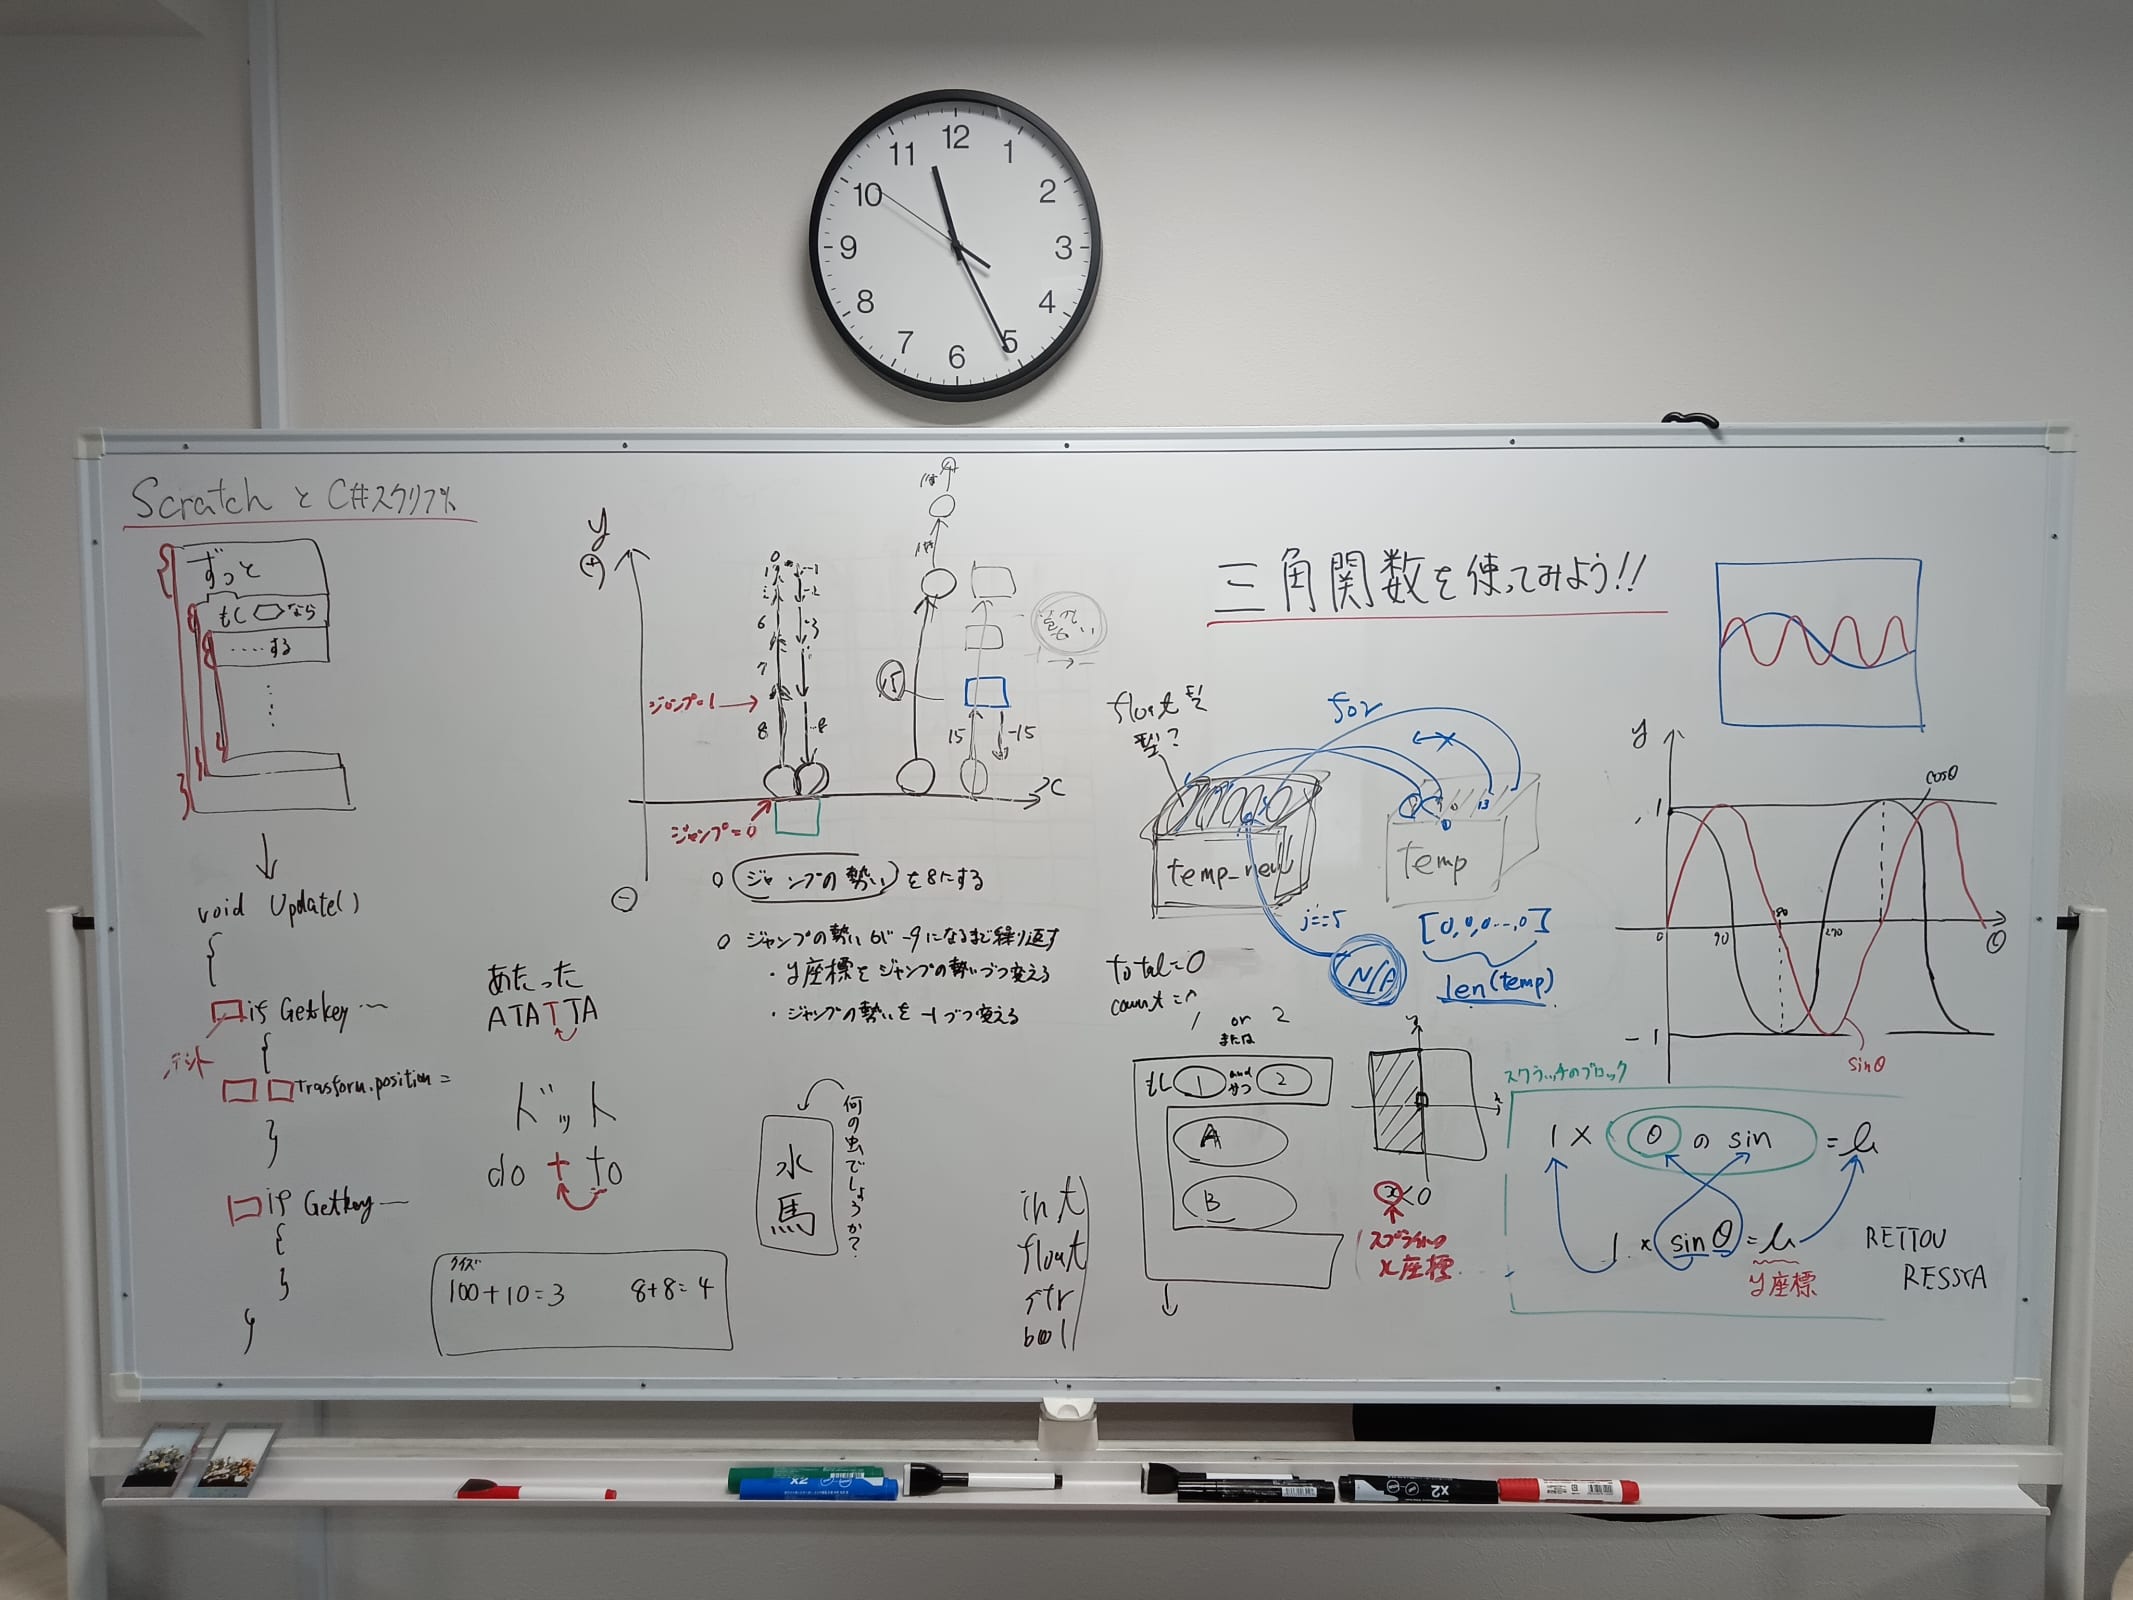 12
1
2
3
4
5
6
7
8
9
10
11
Scratch と C#スクリプト
ずっと
もし なら
.....する
void Update()
{
if Getkey ...
テント
{
Trasform.position =
}
if Getkey —
{
}
}
あたった
ATATTA
ドット
do t to
クイズ
100+10=3 8+8=4
y
(+)
(-)
x
0
1
6
7
8
-1
-2
-3
-8
ジャンプ=1
ジャンプ=0
15
15
-15
勢い
○ ジャンプの勢い を8にする
○ ジャンプの勢いが -9になるまで繰り返す
・y座標を ジャンプの勢いづつ変える
・ジャンプの勢いを -1づつ変える
何の虫でしょうか?
水馬
int
float
str
bool
三角関数を使ってみよう!!
float型
型?
for
13
temp_new
temp
j==5
N/A
[0,0,0...,0]
len(temp)
total=0
count=0
1 or 2
または
もし 1 and かつ 2
A
B
y
x
x<0
スプライトの
x座標
y
1
0
-1
90
180
270
θ
cosθ
sinθ
スクラッチのブロック
1 × θ の sin = y
1 × sinθ = y
y座標
RETTOU
RESSYA
X2
X2